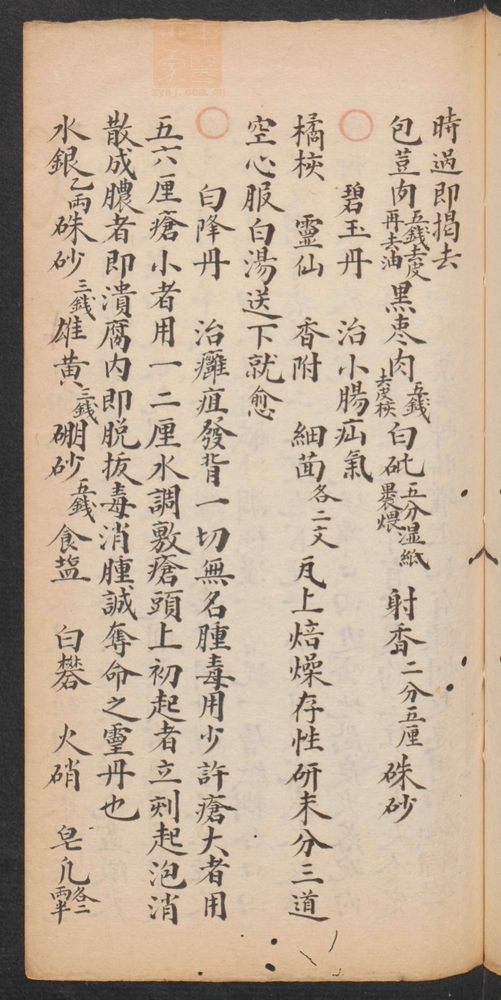 時過即揭去
包荳肉五錢去皮再去油 黑枣肉五錢去皮核 白砒五分湿紙裹煨 射香二分五厘 硃砂
○ 碧玉丹 治小腸疝氣
橘核 靈仙 香附 細茴各二文 瓦上焙燥存性研末分三道
空心服白湯送下就愈
○ 白降丹 治癰疽發背一切無名腫毒用少許瘡大者用
五六厘瘡小者用一二厘水調敷瘡頭上初起者立刻起泡消
散成膿者即潰腐内即脱抜毒消腫誠奪命之靈丹也
水銀乙两 硃砂三錢 雄黄三錢 硼砂五錢 食盐 白礬 火硝 皂凡各二两半